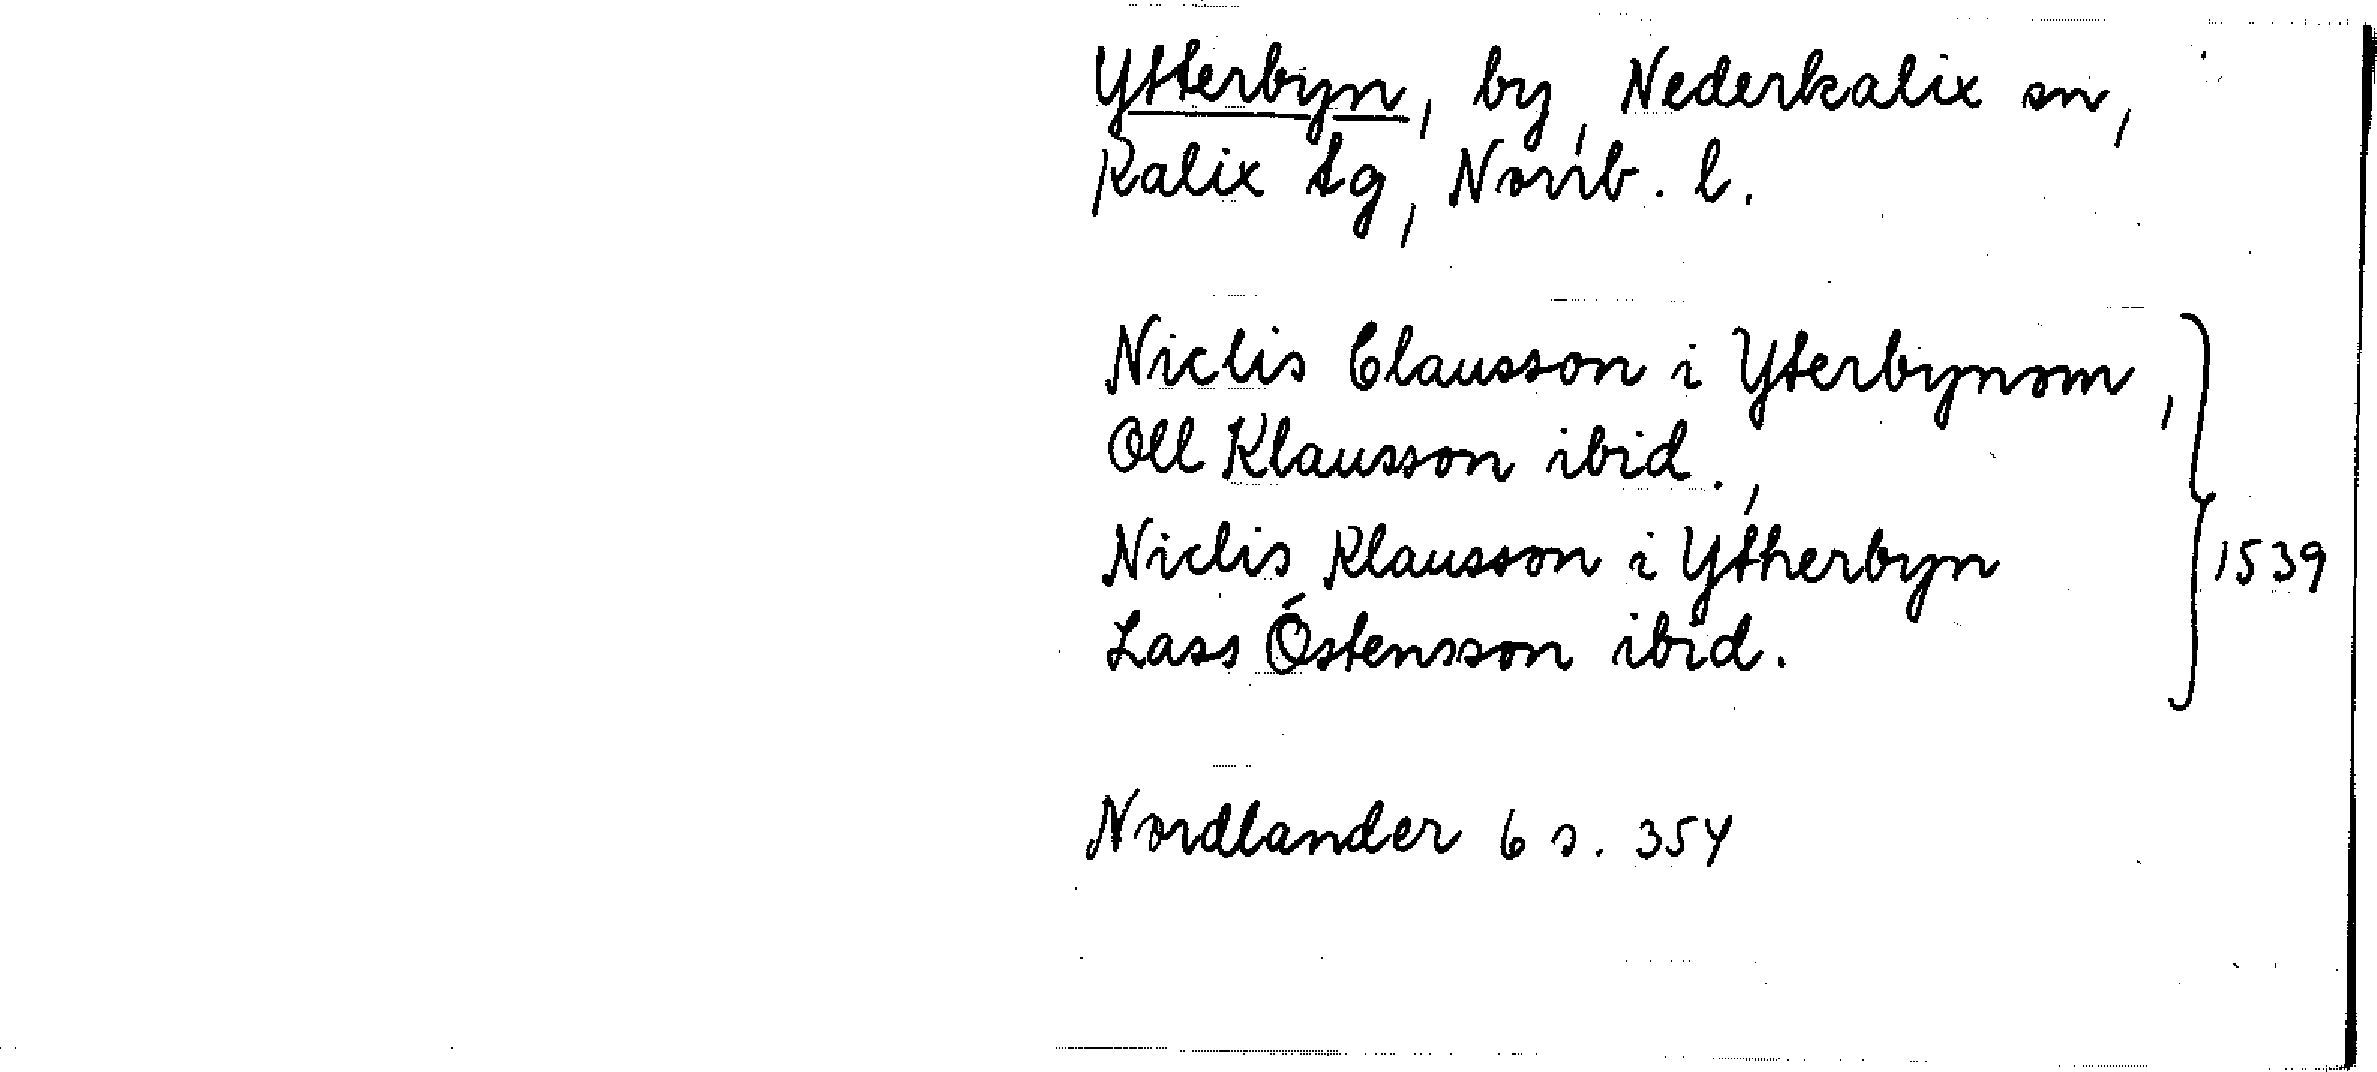 Ytterbyn, by, Nederkalix sn,
Kalix tg, Norrb. l.
Niclis Clausson i Yterbynom,
Oll Klausson ibid.,
Niclis Klausson i Ytherbyn
Lass Óstensson ibid.
1539
Nordlander 6 s. 354